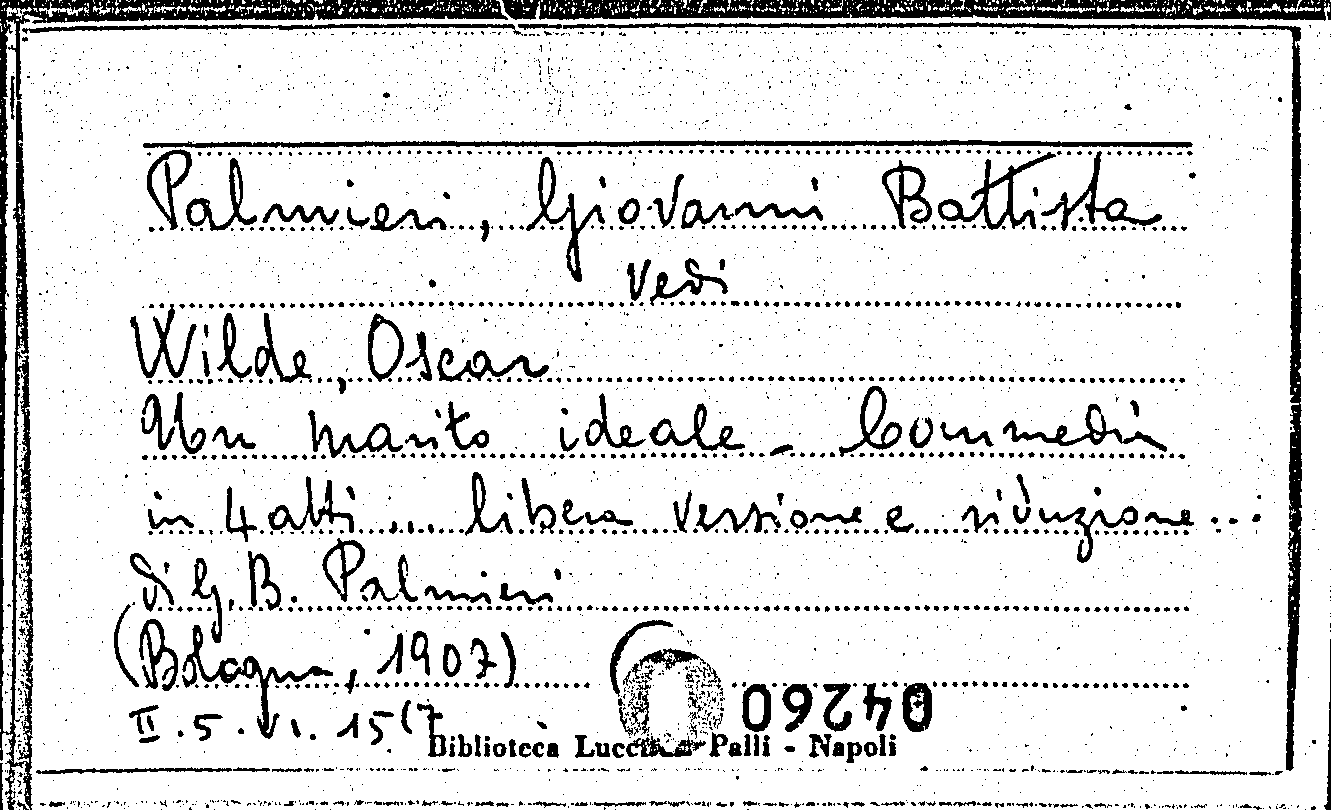 Palmieri, Giovanni Battista
vedi
Wilde, Oscar
Un marito ideale - Commedia
in 4 atti... libera versione e riduzione...
di G. B. Palmieri
(Bologna, 1907)
04260
II. 5. VI. 15(7
Biblioteca Palli - Napoli